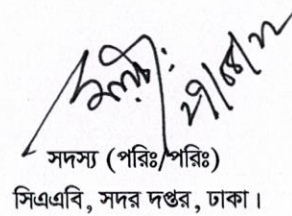 সদস্য (পরিঃ/পরিঃ)
সিএএবি, সদর দপ্তর, ঢাকা।